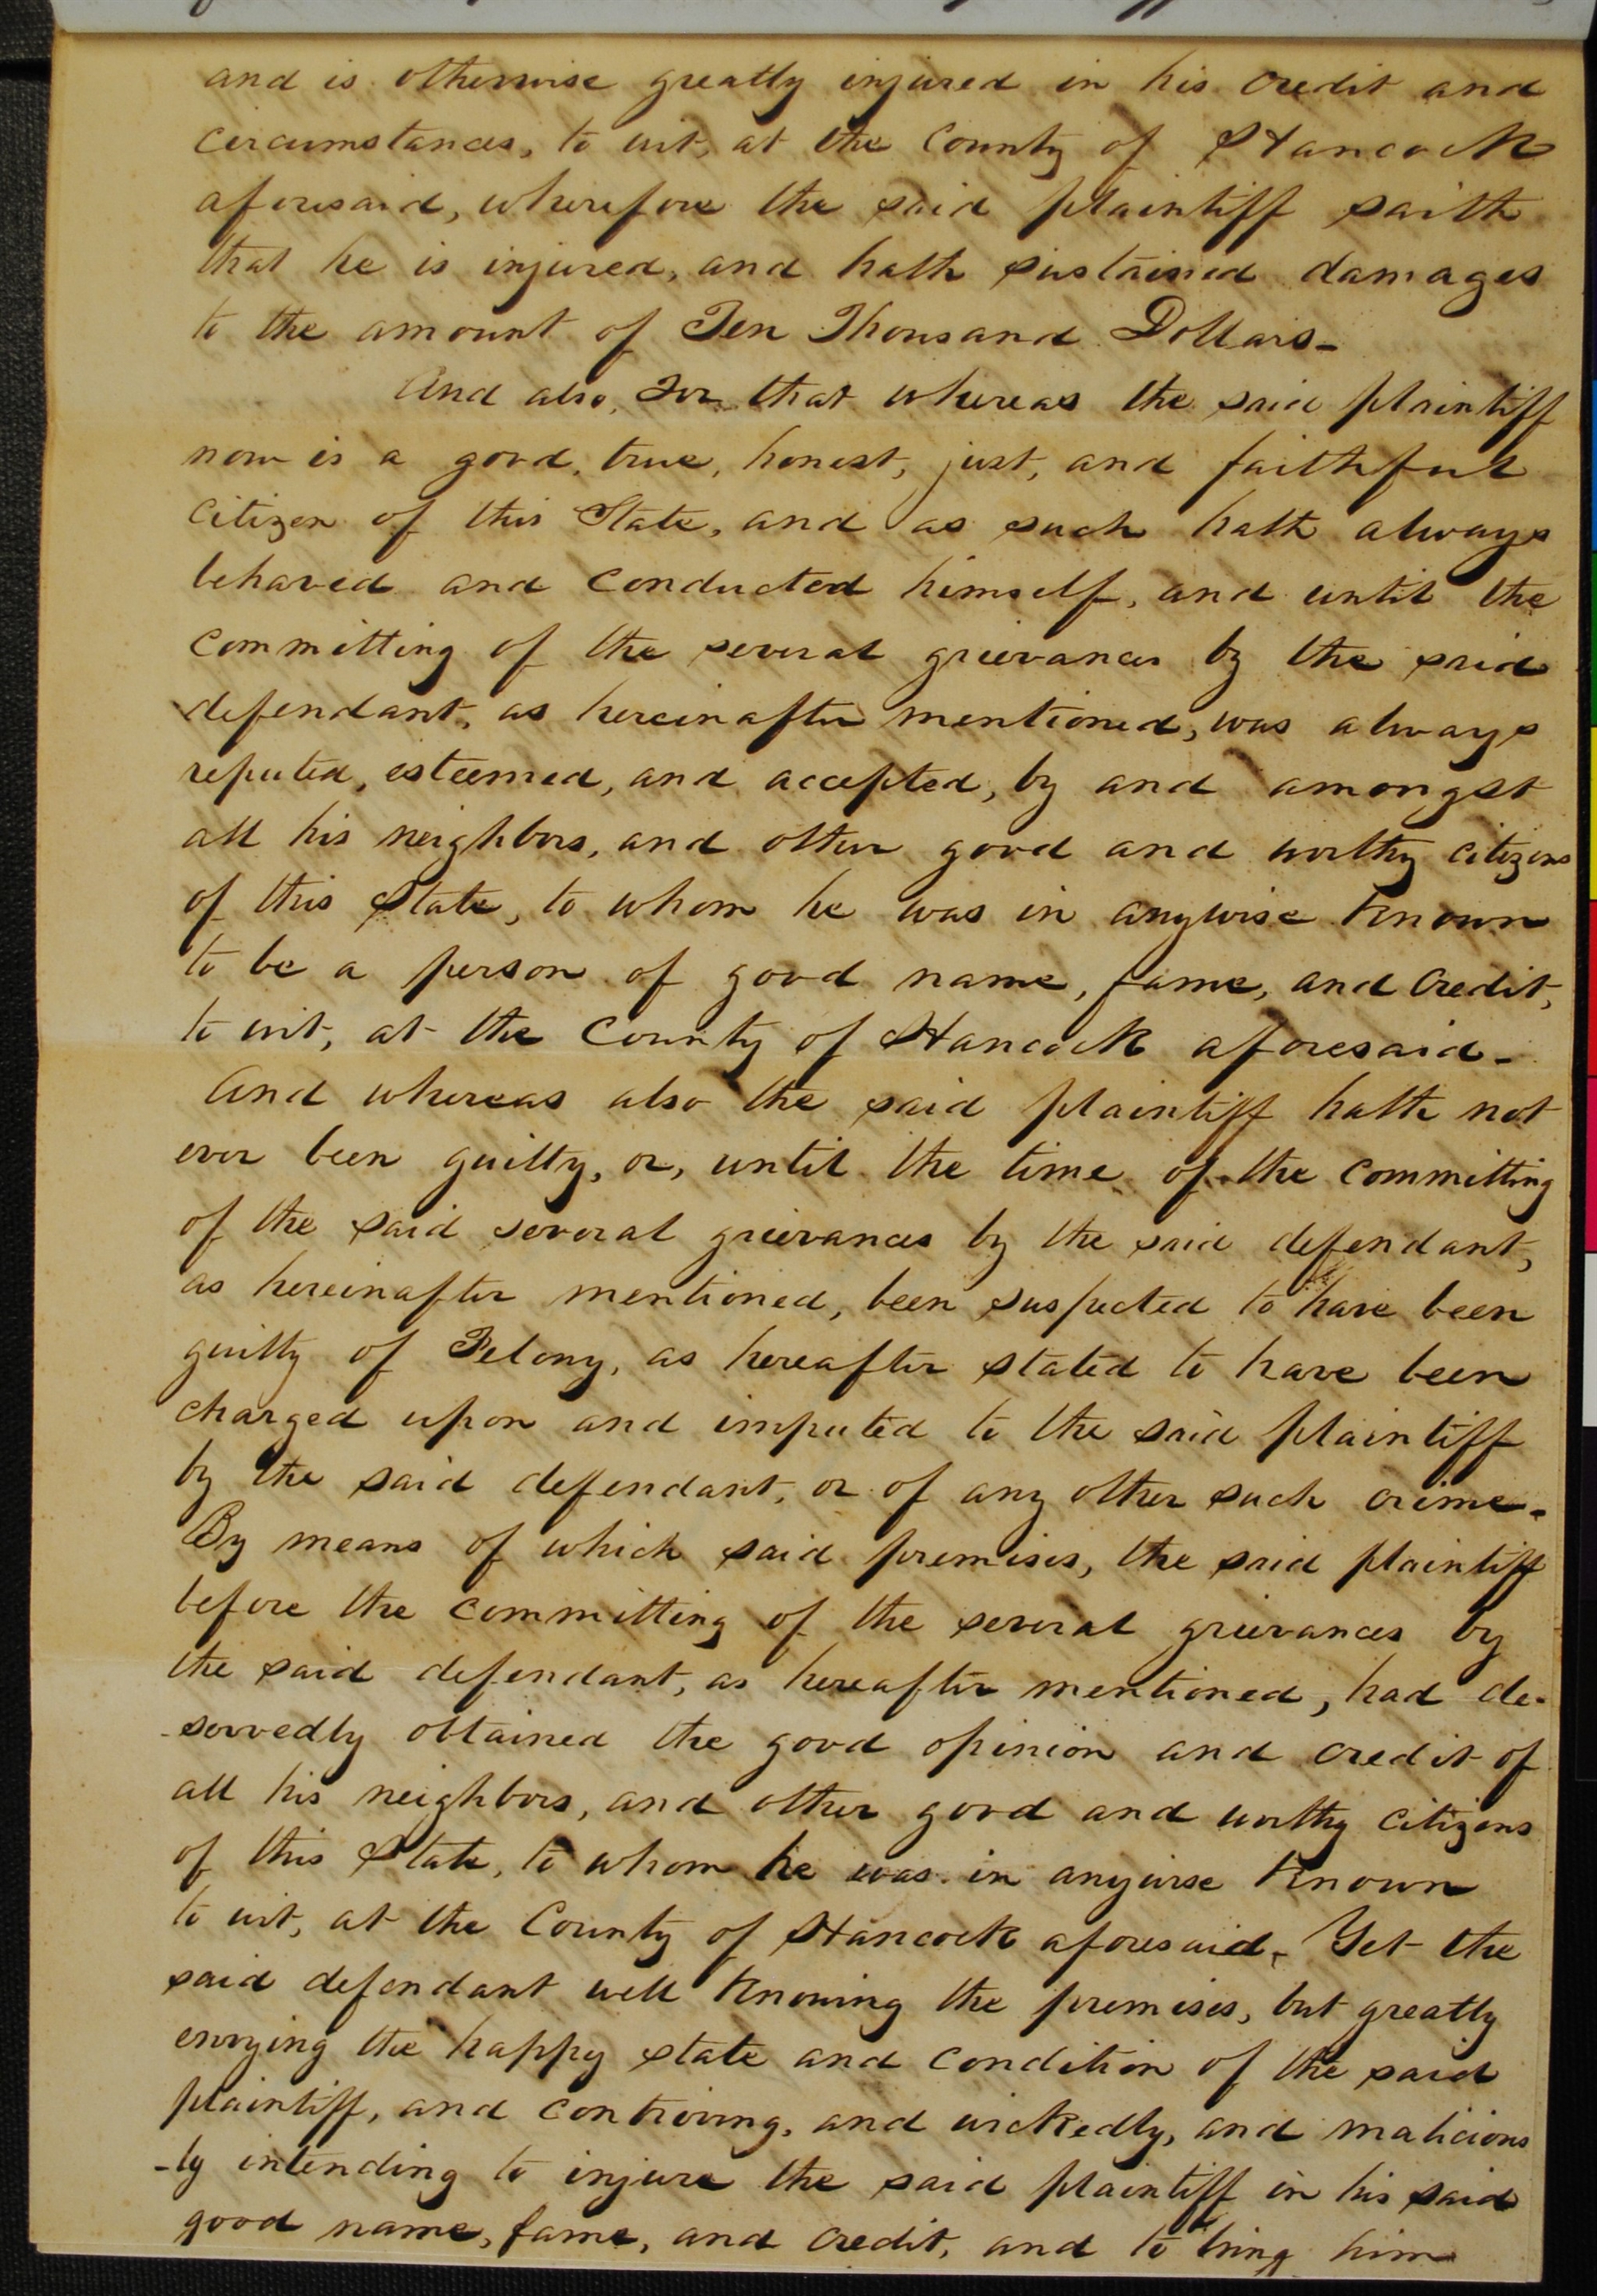 and is otherwise greatly injured in his credit and
circumstances, to wit, at the County of Hancock
aforesaid, wherefore the said plaintiff saith
that he is injured, and hath sustained damages
to the amount of Ten Thousand Dollars-
And also, For that whereas the said plaintiff
now is a good, true, honest, just, and faithful
citizen of this State, and as such hath always
behaved and conducted himself, and until the
committing of the several grievances by the said
defendant, as hereinafter mentioned, was always
reputed, esteemed, and accepted, by and amongst
all his neighbors, and other good and worthy citizens
of this State, to whom he was in anywise known
to be a person of good name, fame, and credit,
to wit, at the County of Hancock aforesaid-
And whereas also the said plaintiff hath not
ever been guilty, or, until the time of the committing
of the said several grievances by the said defendant,
as hereinafter mentioned, been suspected to have been
guilty of Felony, as hereafter stated to have been
charged upon and imputed to the said plaintiff
by the said defendant, or of any other such crime-
By means of which said premises, the said plaintiff
before the committing of the several grievances by
the said defendant, as hereafter mentioned, had de-
-servedly obtained the good opinion and credit of
all his neighbors, and other good and worthy citizens
of this State, to whom he was in anywise known
to wit, at the County of Hancock aforesaid, Yet the
said defendant well knowing the premises, but greatly
envying the happy state and condition of the said
plaintiff, and contriving, and wickedly, and malicious
-ly intending to injure the said plaintiff in his said
good name, fame, and credit, and to bring him